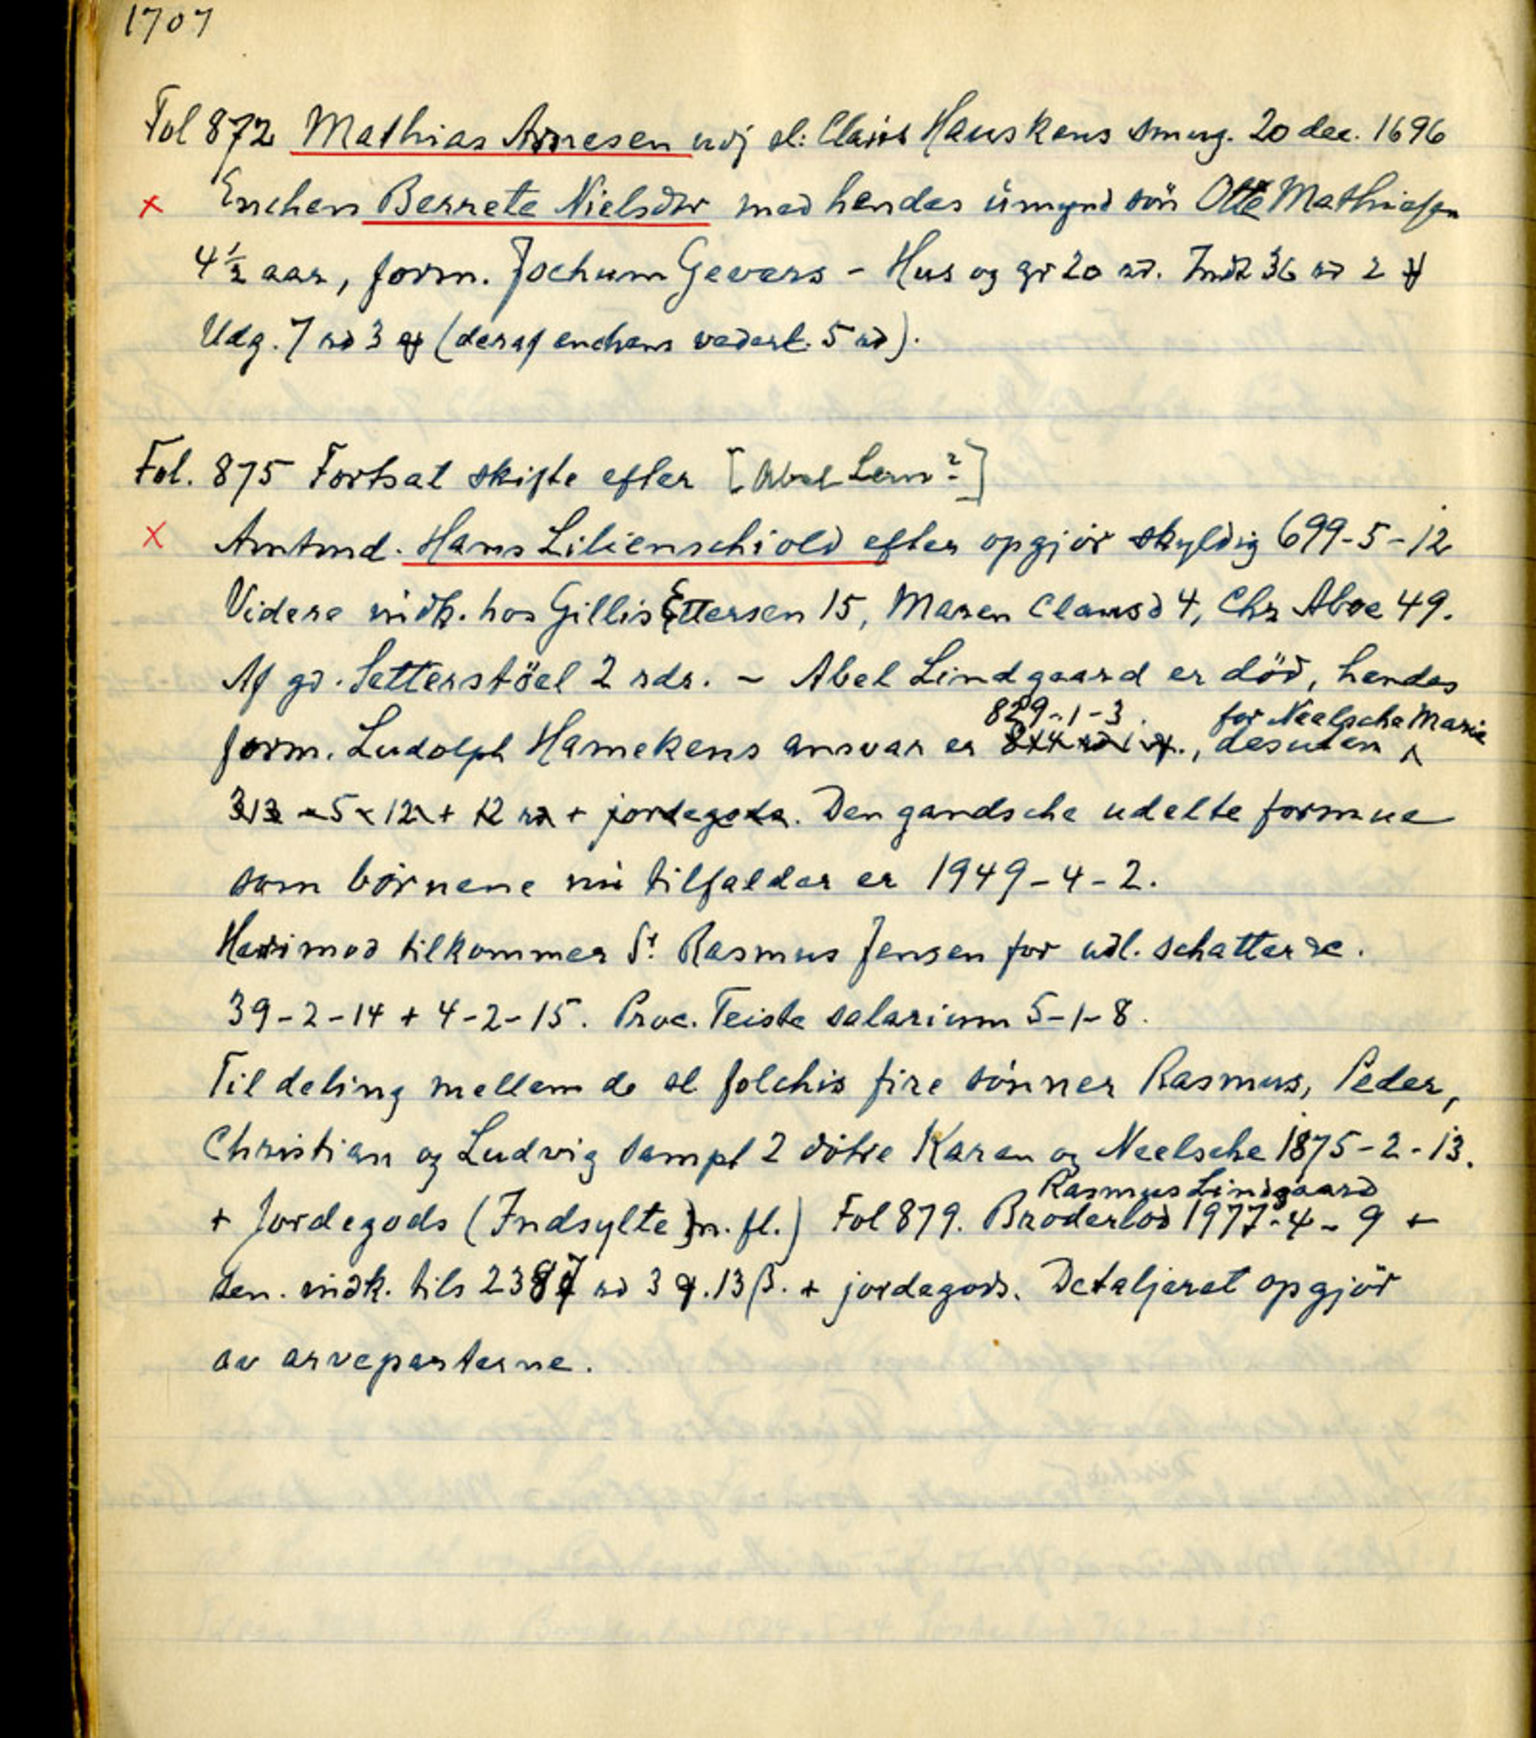 1707
Fol 872 Mathias Arnesen udj sl: Claus Hauskens smug. 20 dec. 1696
x Enchen Berrete Nielsdtr med hendes umynd sön Otte Mathiesen
4½ aar, form. Jochum Gevers - Hus og gr 20 rd. Indt 36 rd 2
Udg. 7 rd 3 (deraf enchens vederl. 5 rd).
Fol. 875 Fortsat skifte efter [Abel Lem?]
x Amtmd. Hans Lilienschiold efter opgjör skyldig 699-5-12
Videre indk. hos Gillis Ettersen 15, Maren Clausd 4, Chr Aboe 49.
Af gd. Setterstöel 2 rdr. - Abel Lindgaard er död, hendes
829-1-3. for Neelsche Marie
form. Ludolph Hamekens ansvar er , desuten
313-5-12 + 12 rd + jordegods. Den gandsche udelte formue
som börnene nu tilfalder er 1949-4-2.
Herimod tilkommer Sr. Rasmus Jensen for udl. schatter &c.
39-2-14 + 4-2-15. Proc. Teiste salarium 5-1-8.
Til deling mellem de sl folchis fire sönner Rasmus, Peder,
Christian og Ludvig sampt 2 dötre Karen og Neelsche 1875-2-13.
Rasmus Lindgaard
+ Jordegods (Indsylte m. fl.) Fol 879. Broderlod 1977-4-9 +
sen. indk. tils 2387 rd 3 .13 β. + jordegods. Detaljeret opgjör
av arveparterne.